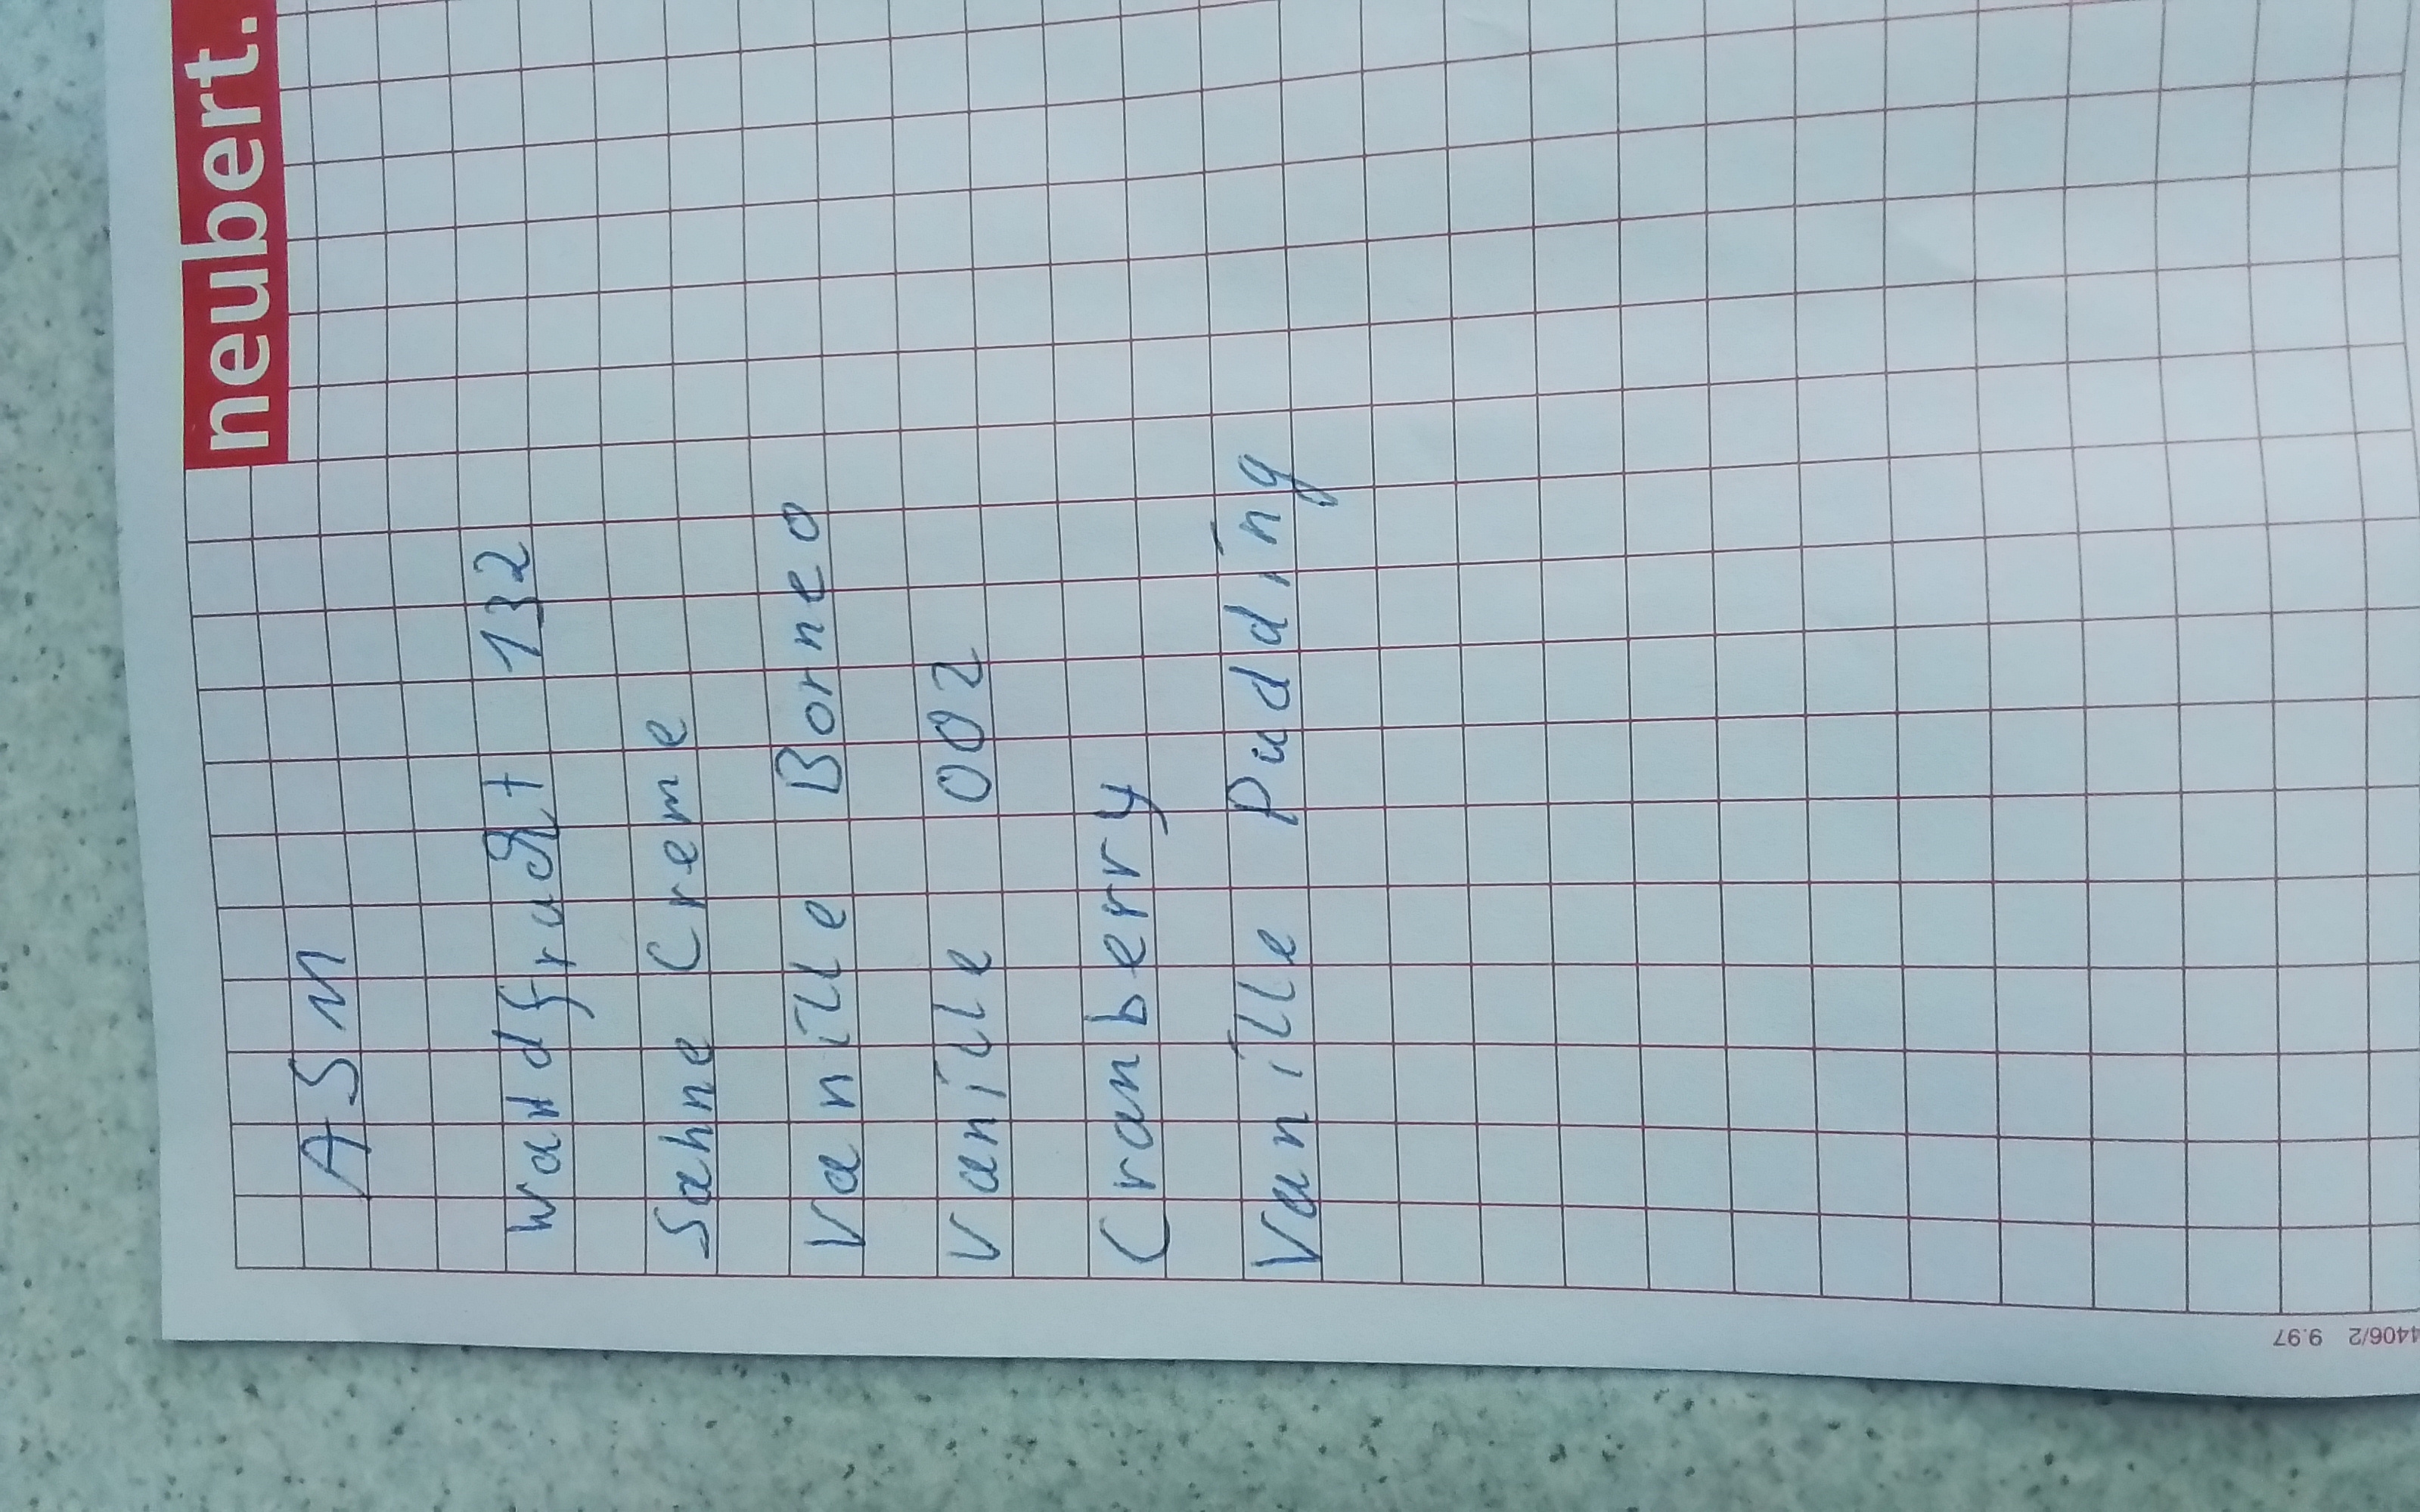 neubert.
ASM
Waldfrucht 132
Sahne Creme
Vanille Borneo
Vanille 002
Cranberry
Vanille Pudding
4406/2 9.97